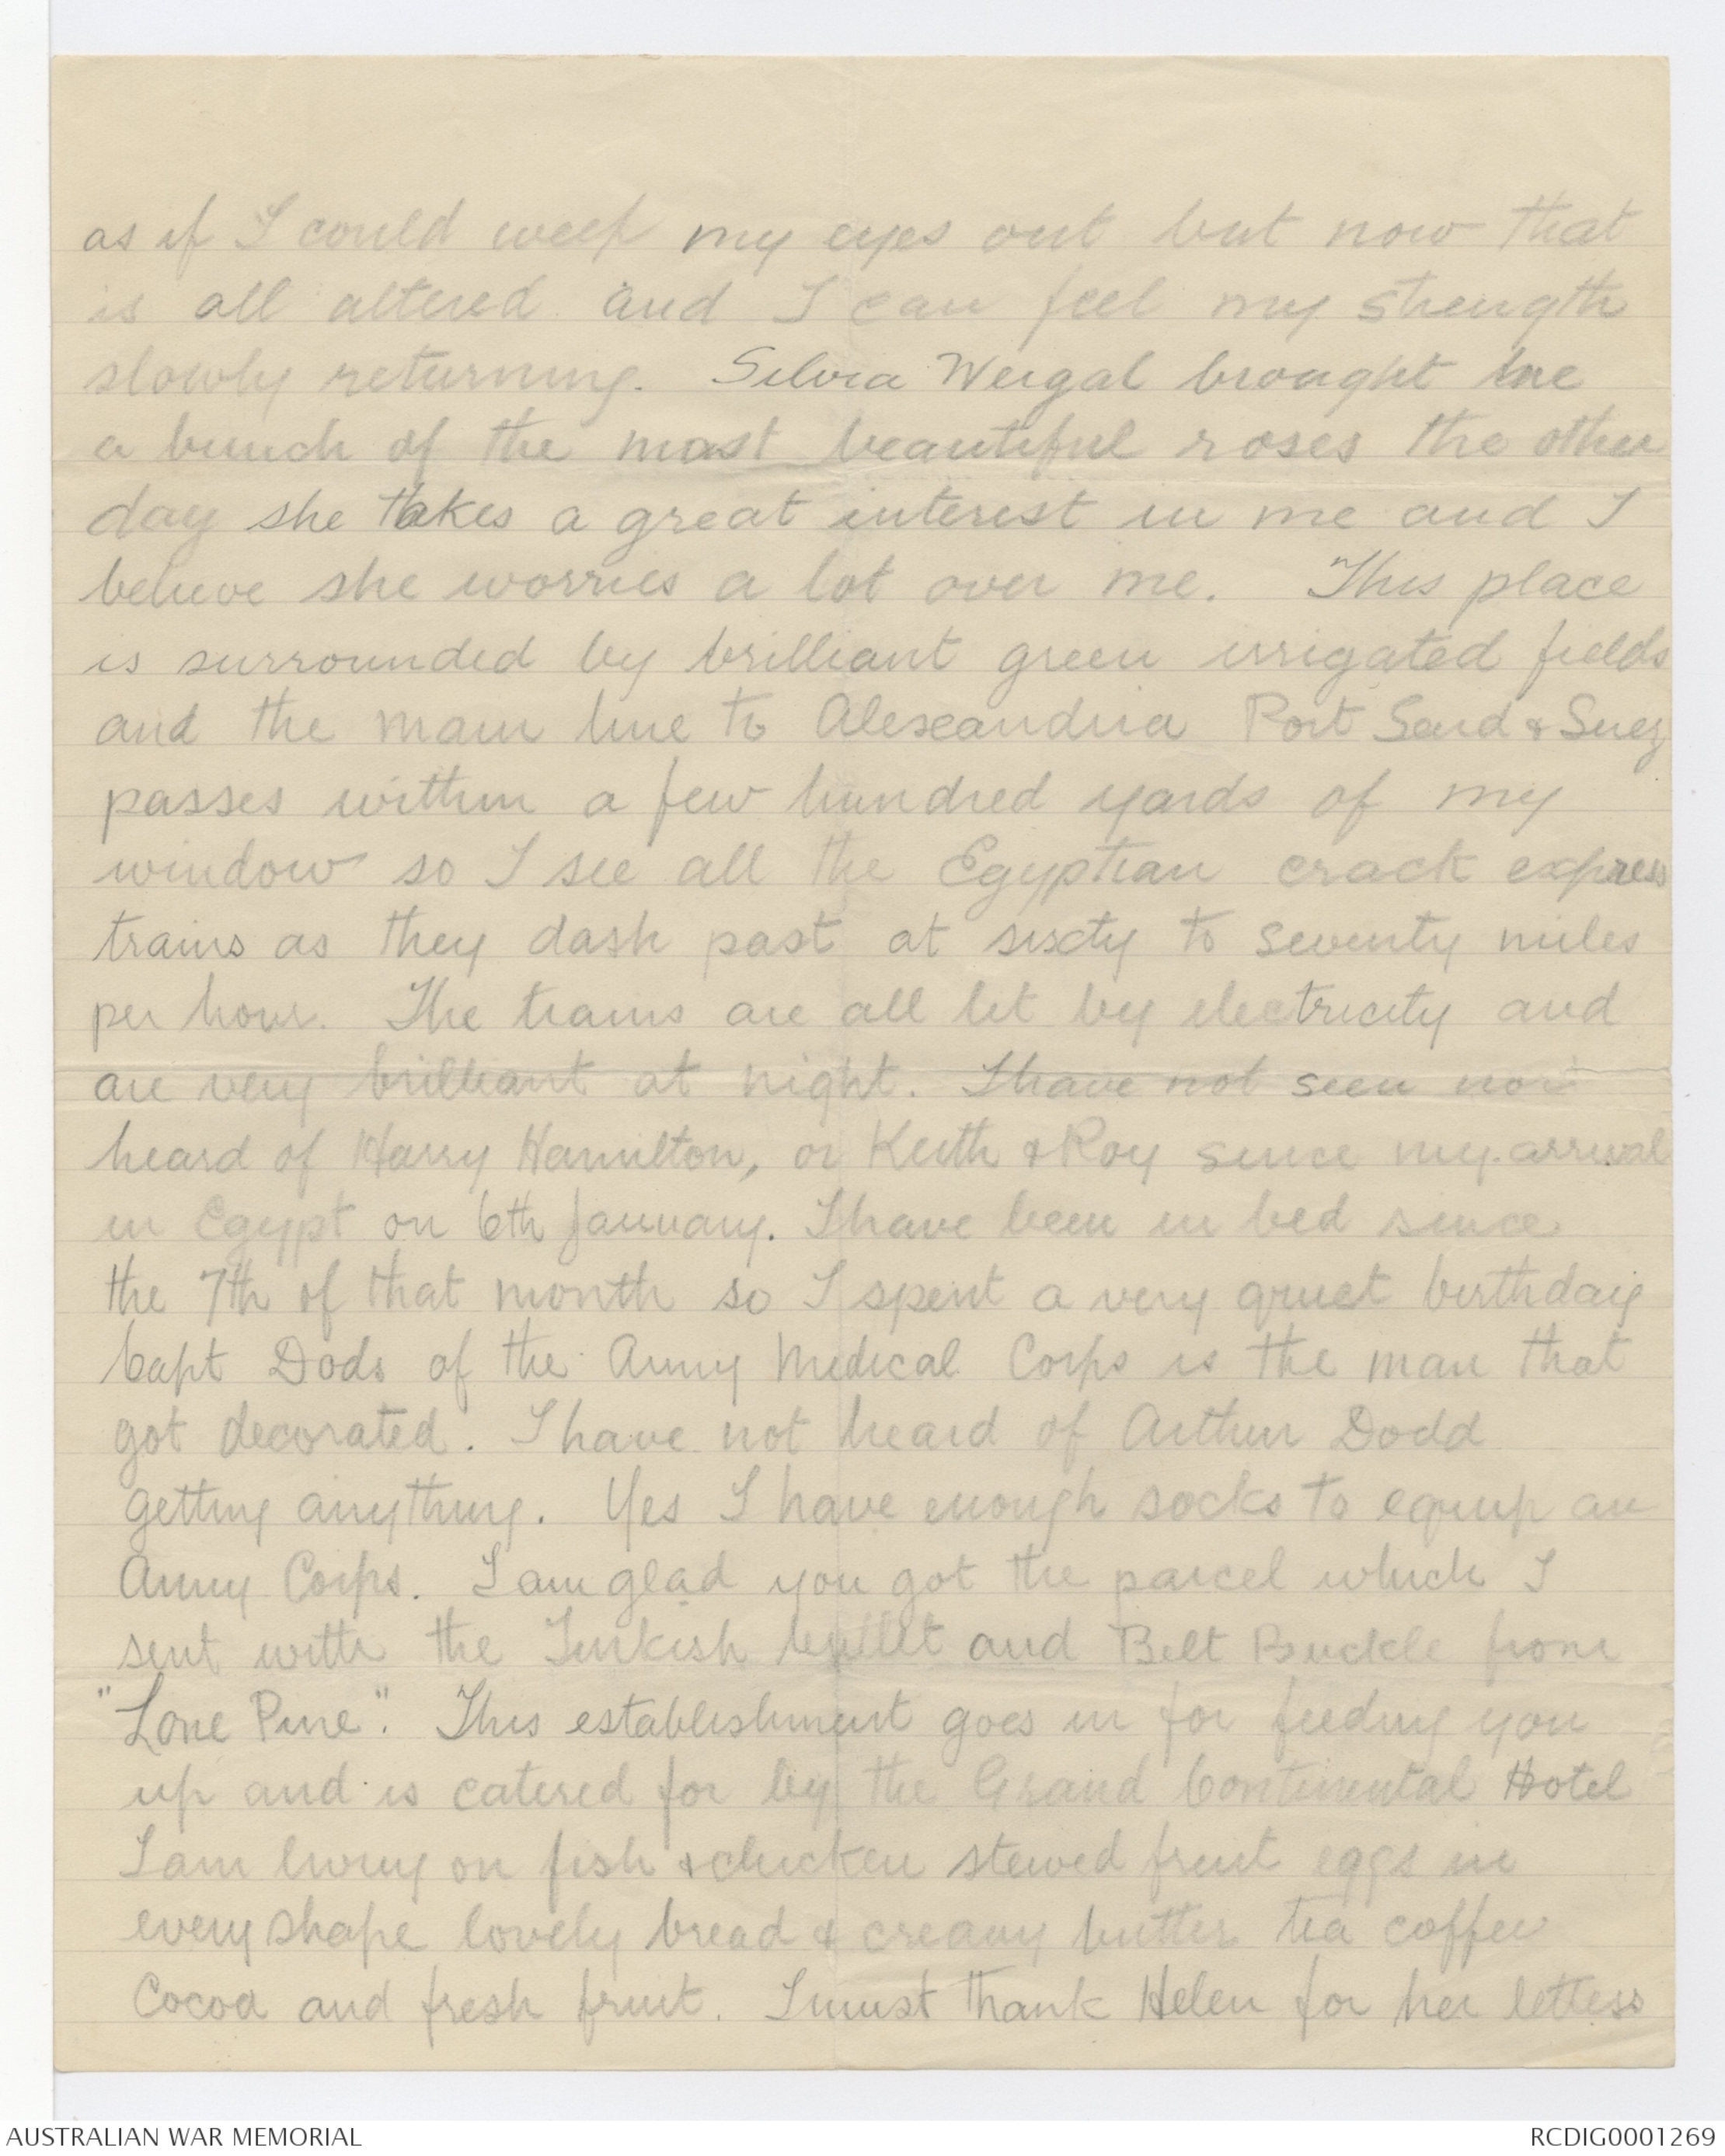 as if I could weep my eyes out but now that
is all altered and I can feel my strength
slowly returning. Silvia Weigal brought me
a bunch of the most beautiful roses the other
day she takes a great interest in me and I
believe she worries a lot over me. This place
is surrounded by brilliant green irrigated fields
and the main line to Alexandria Port Said & Suez
passes within a few hundred yards of my
window so I see all the Egyptian crack express
trains as they dash past at sixty to seventy miles
per hour. The trains are all lit by electricity and
are very brilliant at night. I have not seen nor
heard of Harry Hamilton, or Keith & Roy since my arrival
in Egypt on 6th January. I have been in bed since
the 7th of that month so I spent a very quiet birthday
Capt Dods of the Army Medical Corps is the man that
got decorated. I have not heard of Arthur Dodd
getting anything. Yes I have enough socks to equip an
Army Corps. I am glad you got the parcel which I
sent with the Turkish bullet and Belt Buckle from
"Lone Pine". This establishment goes in for feeding you
up and is catered for by the Grand Continental Hotel
I am living on fish & chicken stewed fruit eggs in
every shape lovely bread & creamy butter tea coffee
Cocoa and fresh fruit. I must thank Helen for her letters
AUSTRALIAN WAR MEMORIAL
RCDIG0001269